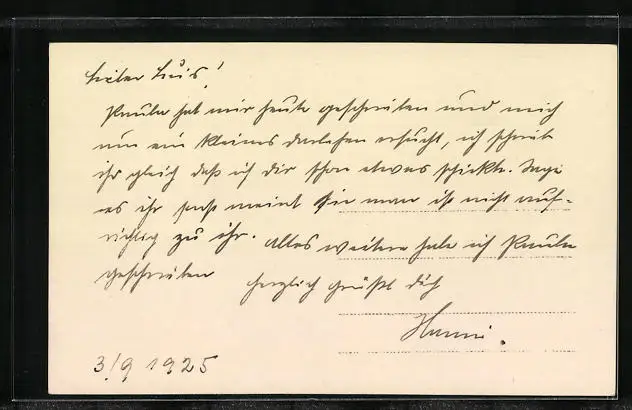 Lieber Luis!
Paula hat mir heute geschrieben und mich
um ein kleines Darlehen ersucht, ich schrieb
ihr gleich daß ich Dir schon etwas schickte. Sage
es ihr sonst meint Sie man ist nicht auf-
richtig zu ihr. Alles weitere habe ich Paula
geschrieben
herzlich grüßt Dich
Hanni.
3/9 1925